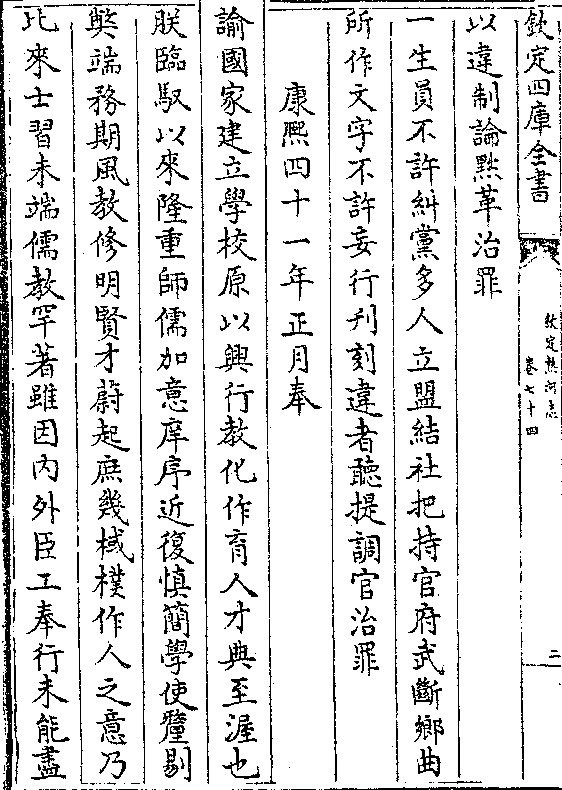 欽定四庫全書
欽定熱河志
卷七十四
二
以違制論黜革治罪
一生員不許糾黨多人立盟結社把持官府武斷鄉曲
所作文字不許妄行刋刻違者聽提調官治罪
康熙四十一年正月奉
諭國家建立學校原以興行教化作育人才典至渥也
朕臨馭以來隆重師儒加意庠序近復慎簡學使釐剔
獘端務期風教修明賢才蔚起庶幾棫樸作人之意乃
比來士習未端儒教罕著雖因內外臣工奉行未能盡